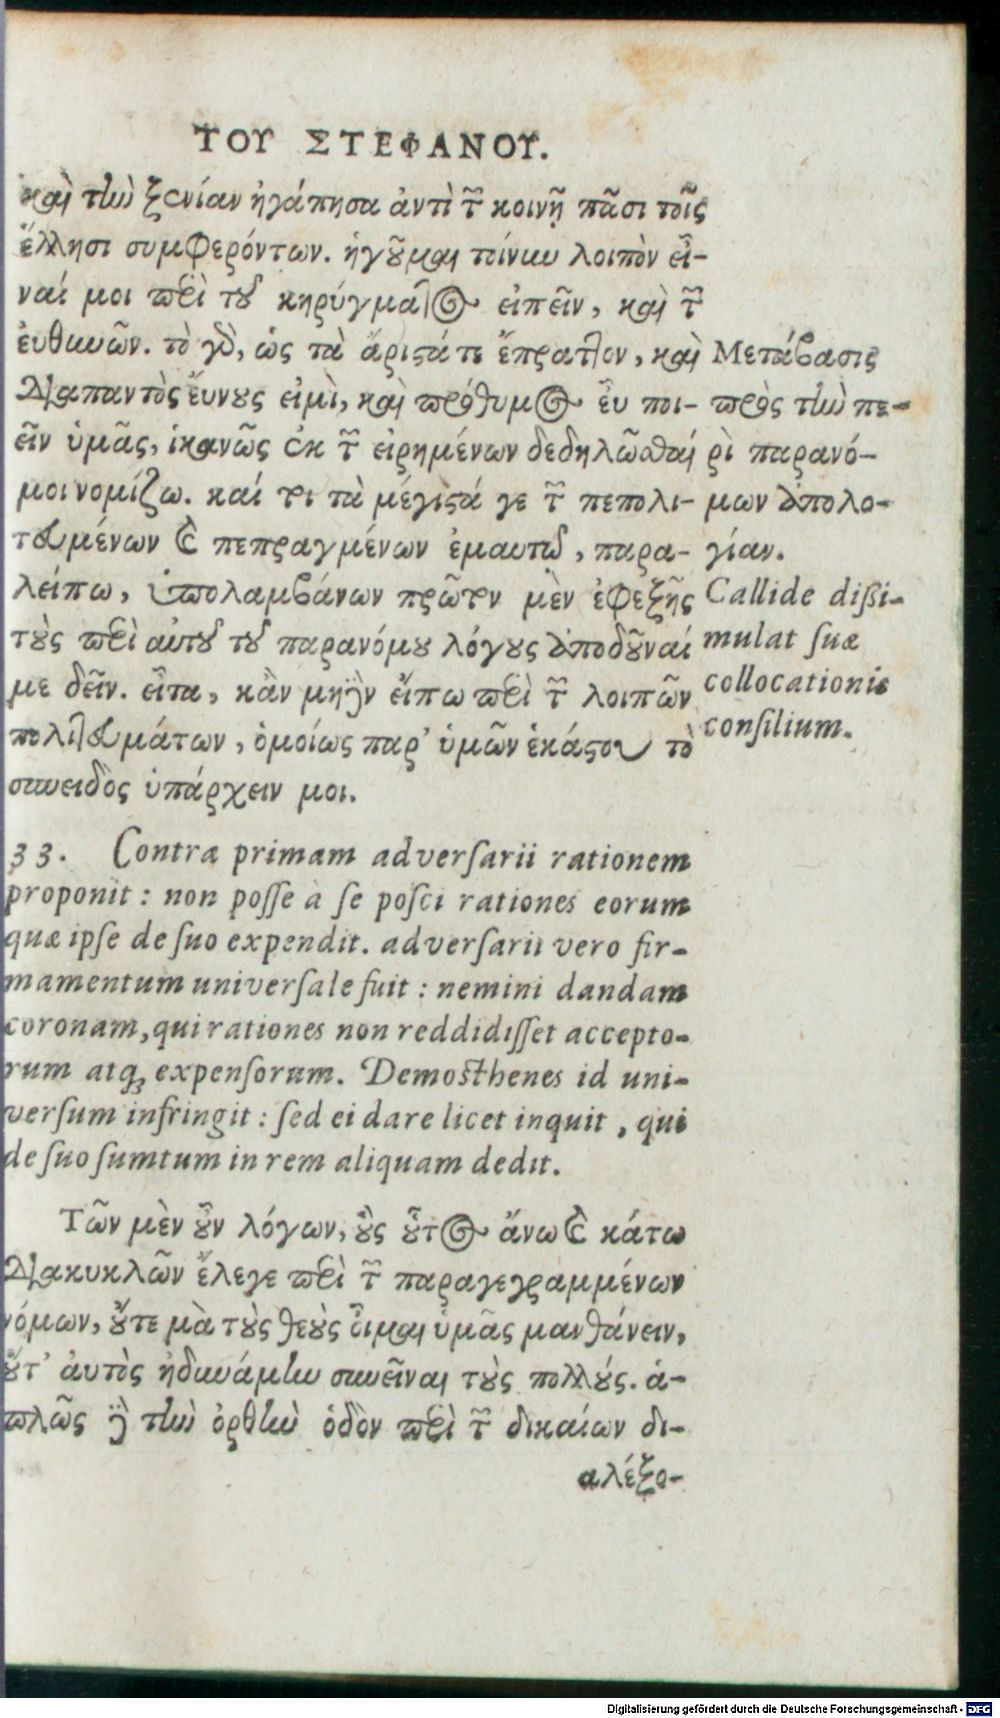 ΤΟΥ ΣΤΕΦΑΝΟΥ.
καὶ τὴν ξενίαν ἠγάπησα ἀντὶ τῶν κοινῇ πᾶσι τοῖς
ἕλλησι συμφερόντων. ἡγοῦμαι τοίνυν λοιπὸν εἶ-
ναί μοι περὶ τοῦ κηρύγματος εἰπεῖν, καὶ τῶν
ἐυθυνῶν. τὸ γὰρ, ὡς τὰ ἄριστά τε ἔπραττον, καὶ
διαπαντὸς ἔυνους εἰμὶ, καὶ πρόθυμος ἐυ ποι-
εῖν ὑμᾶς, ἱκανῶς ἐκ τῶν εἰρημένων δεδηλῶσθαί
μοι νομίζω. καί τοι τὰ μέγιστά γε τῶν πεπολι-
τευμένων καὶ πεπραγμένων ἐμαυτῷ, παρα-
λείπω, ὑπολαμβάνων πρῶτον μὲν ἐφεξῆς
τοὺς περὶ αὐτοῦ τοῦ παρανόμου λόγους ἀποδοῦναί
με δεῖν. εἶτα, κἂν μηδὲν εἴπω περὶ τῶν λοιπῶν
πολιτευμάτων, ὁμοίως παρ' ὑμῶν ἑκάστου τὸ
συνειδὸς ὑπάρχειν μοι.
Μετάβασις
πρὸς τὴν πε-
ρὶ παρανό-
μων ἀπολο-
γίαν.
Callide dißi-
mulat suæ
collocationis
consilium.
33. Contra primam adversarii rationem
proponit: non posse à se posci rationes eorum
quæ ipse de suo expendit. adversarii vero fir-
mamentum universale fuit: nemini dandam
coronam, qui rationes non reddidisset accepto-
rum atq; expensorum. Demosthenes id uni-
versum infringit: sed ei dare licet inquit, qui
de suo sumtum in rem aliquam dedit.
Τῶν μὲν οὖν λόγων, οὓς οὗτος ἄνω καὶ κάτω
διακυκλῶν ἔλεγε περὶ τῶν παραγεγραμμένων
νόμων, οὔτε μὰ τοὺς θεοὺς οἶμαι ὑμᾶς μανθάνειν,
οὔτ' ἀυτὸς ἠδυνάμην συνεῖναι τοὺς πολλούς. ἁ-
πλῶς δὲ τὴν ὀρθὴν ὁδὸν περὶ τῶν δικαίων δι-
αλέξο-
Digitalisierung gefördert durch die Deutsche Forschungsgemeinschaft - DFG